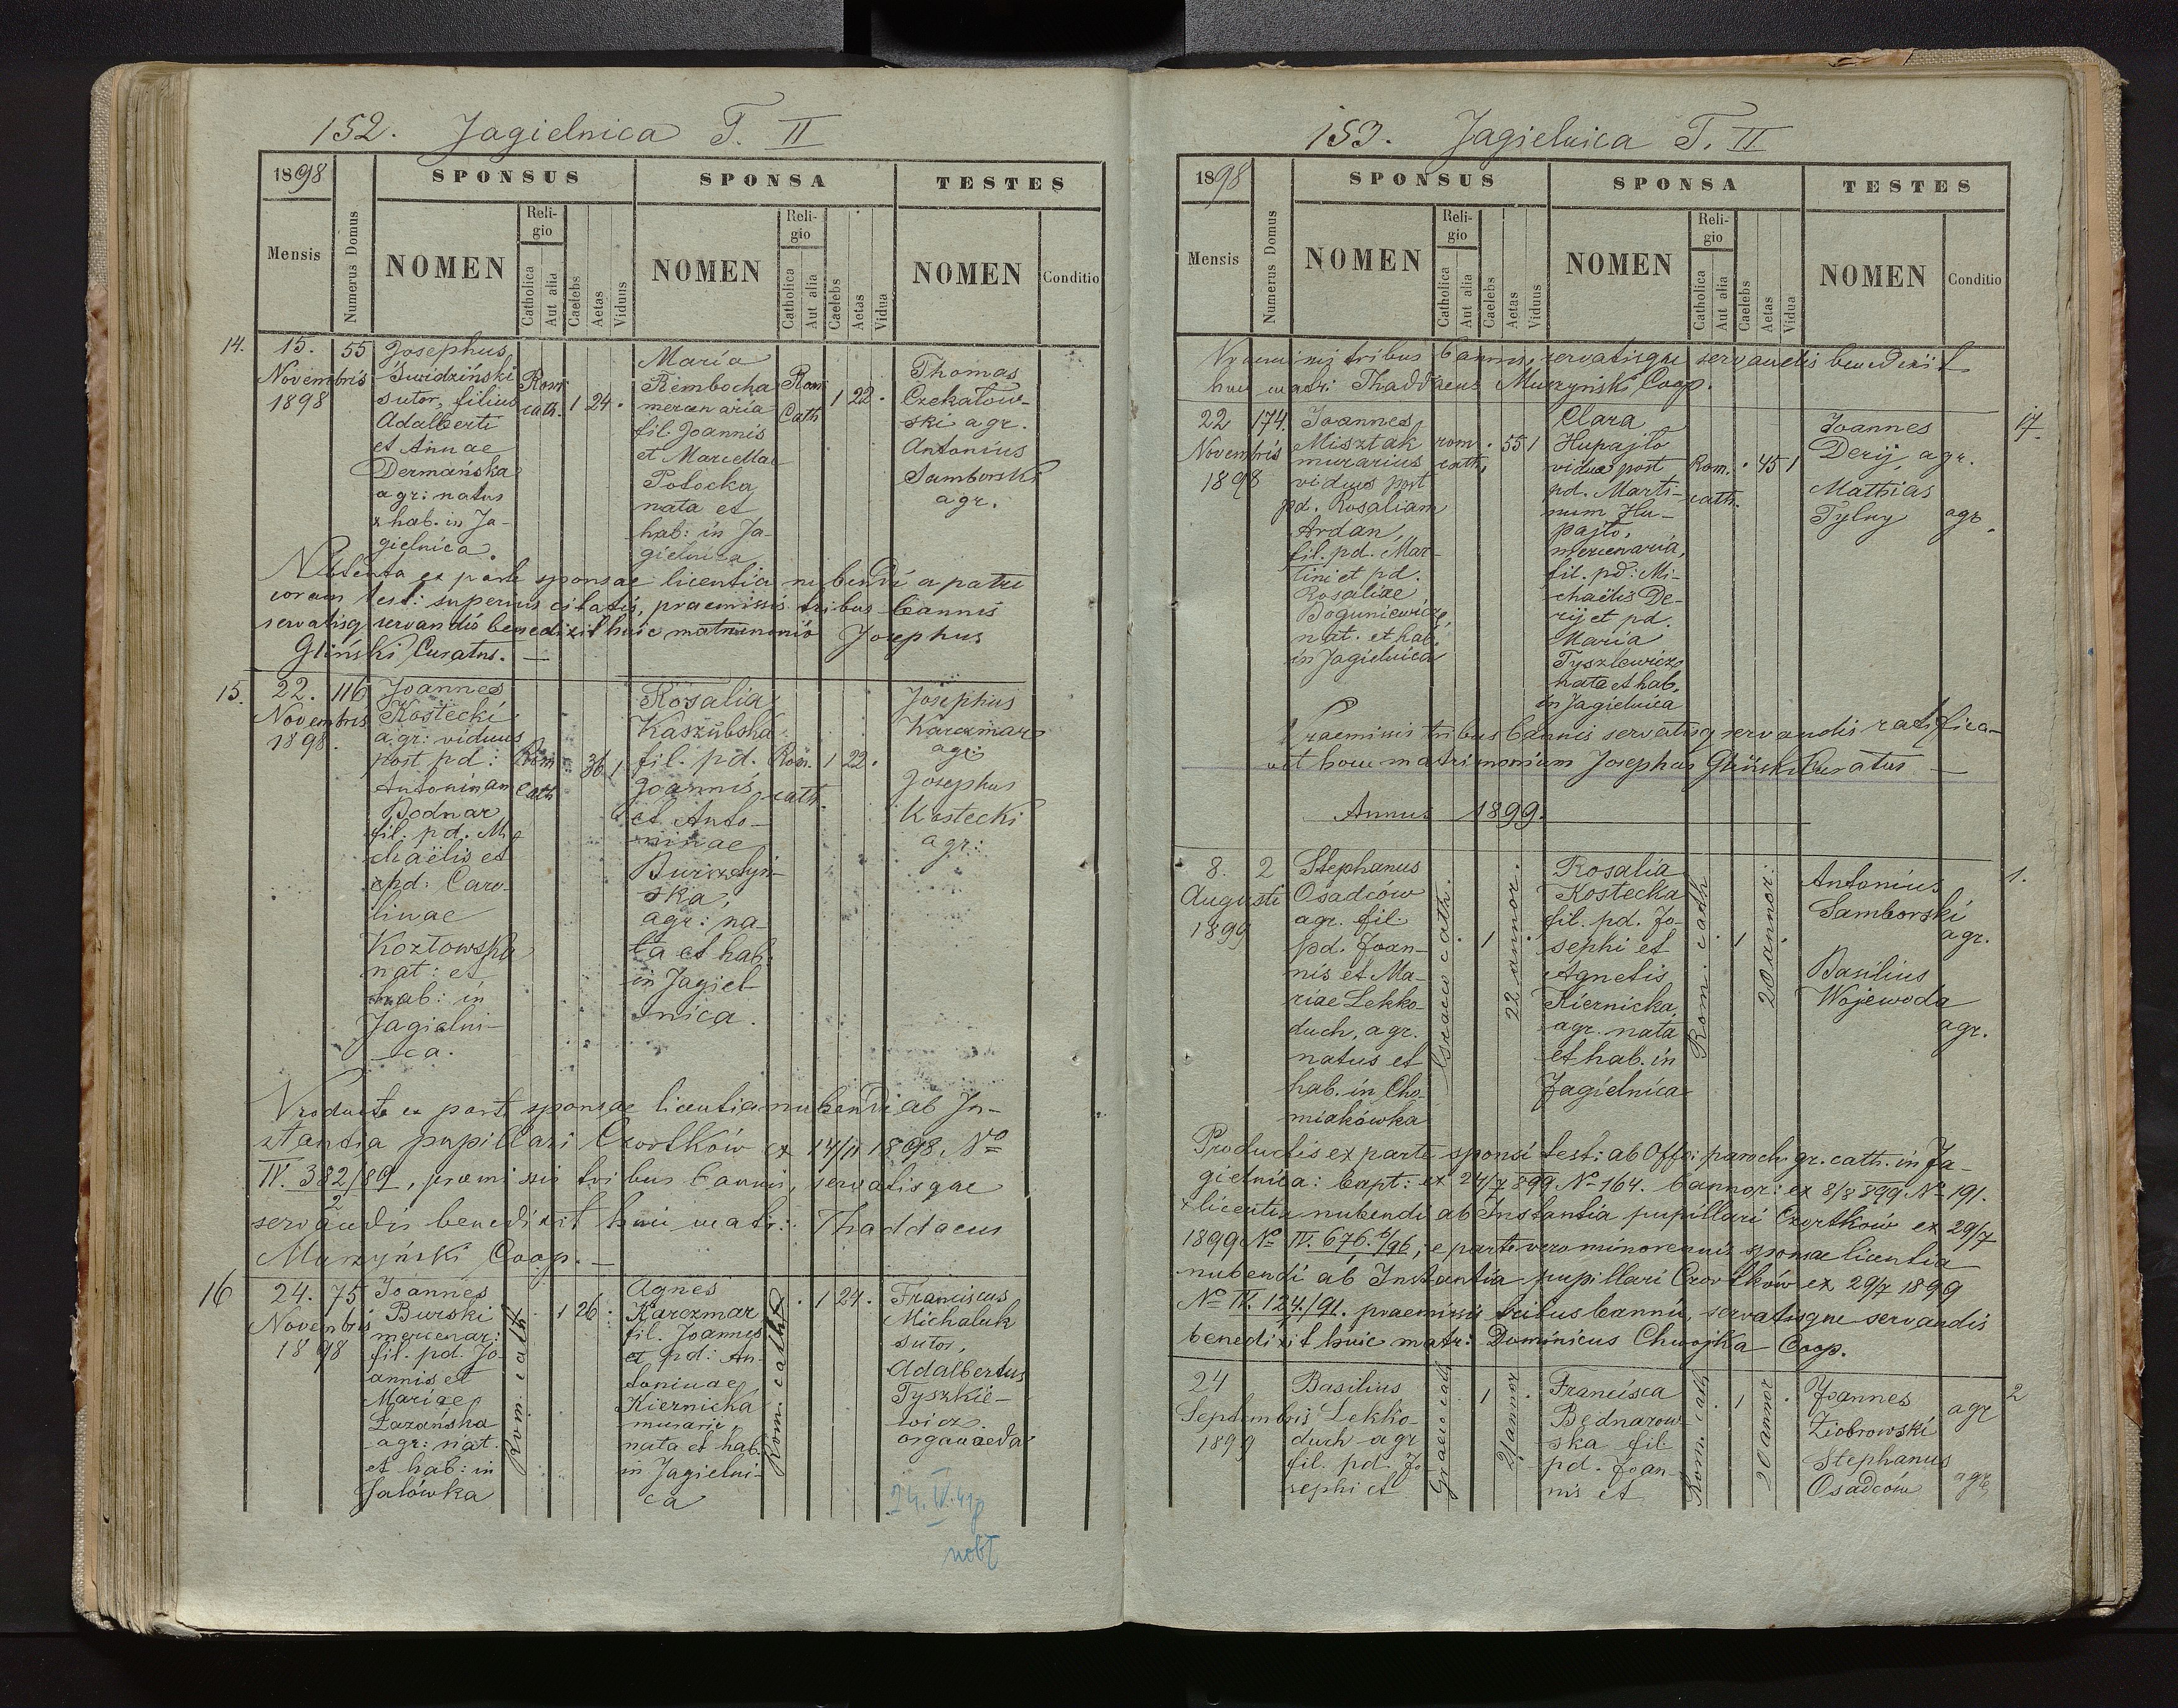 152. Jagielnica T. II
1898
SPONSUS
SPONSA
TESTES
Mensis
Numerus Domus
NOMEN
Religio
Catholica
Aut alia
Caelebs
Aetas
Viduus
NOMEN
Religio
Catholica
Aut alia
Caelebs
Aetas
Vidua
NOMEN
Conditio
14.
15.
Novembris
1898
55
Josephus
Świdziński
sutor, filius
Adalberti
et Annae
Dermańska
agr: natus
& hab. in Ja-
gielnica.
Rom.
cath.
1
24.
Maria
Rembocha
mercenaria
fil. Joannis
et Marcellae
Potocka
nata et
hab: in Ja-
gielnica
Rom.
Cath
1
22.
Thomas
Czekałow-
ski agr.
Antonius
Samborski
agr.
ex parte sponsae licentia nubendi a patre
coram test: superius citatis, praemissis tribus bannis
servatisq servandis benedixit huic matrimonio Josephus
Gliński Curatus. —
15.
22.
Novembris
1898.
116
Joannes
Kostecki
agr: viduus
post pd:
Antoninam
Bodnar
fil. pd. Mi
chaëlis et
pd: Caro-
linae
Kozłowska
nat: et
hab: in
Jagielni-
ca.
Rom
Cath
36
1
Rosalia
Kaszubska
fil. pd.
Joannis
et Anto-
ninae
ska,
agr: na-
ta et hab:
in Jagiel-
nica.
Rom.
cath.
1
22.
Josephus
Karczmar
agr:
Josephus
Kostecki
agr:
Producta ex parte sponsae licentia nubendi ab In-
stantia pupillari Czortków ex 14/11 1898 No
IV. 382/89, praemissis tribus bannis, servatisque
2
servandis benedixit huic matr: Thaddaeus
Muszyński Coop. —
16
24.
Novembris
1898
75
Joannes
Burski
mercenar:
fil. pd. Jo-
annis et
Mariae
Łazańska
agr: nat.
et hab: in
Salówka
Rom. cath
1
26.
Agnes
Karczmar
fil. Joannes
et pd: An-
toninae
Kiernicka
murarii,
nata et hab.
in Jagielni-
ca
Rom. cath
1
24.
Franciscus
Michaluk
sutor,
Adalbertus
Tyszkie-
wicz.
organaeda
153. Jagielnica T. II
1898
SPONSUS
SPONSA
TESTES
Mensis
Numerus Domus
NOMEN
Religio
Catholica
Aut alia
Caelebs
Aetas
Viduus
NOMEN
Religio
Catholica
Aut alia
Caelebs
Aetas
Vidua
NOMEN
Conditio
Praemissis tribus bannis, servatisque servandis benedixit
huic matr: Thaddaeus Muszyński Coop.
22
Novembris
1898
174.
Joannes
Misztak
murarius
viduus post
pd. Rosaliam
Ardan,
fil. pd. Mar-
tini et pd.
Rosaliae
Boguniewicz,
nat. et hab.
in Jagielnica
rom.
cath.
55
1
Clara
Hupajło
vidua post
pd. Marti-
num Hu-
pajło,
mercenaria,
fil. pd: Mi-
chaëlis De-
rij et pd.
Maria
Tyszkewicz
nata et hab.
in Jagielnica
Rom.
cath.
45
1
Joannes
Derij, agr.
Mathias
Tylny agr.
17.
Praemissis tribus bannis servatisq servandis ratifica-
vit hocce matrimonium Josephus Gliński Curatus —
Annus 1899.
8.
Augusti
1899
2
Stephanus
Osadców
agr. fil.
pd. Joan-
nis et Ma-
riae Lekko-
duch, agr.
natus et
hab. in Cho-
miakówka
Graeco cath.
1
22 annor.
Rosalia
Kostecka
fil. pd. Jo-
sephi et
Agnetis
Kiernicka,
agr. nata
et hab. in
Jagielnica
Rom. cath
1
20 annor.
Antonius
Samborski
agr.
Basilius
Wojewoda
agr.
1.
Productis ex parte sponsi test: ab Offo: paroch. gr. cath. in Ja-
gielnica: bapt: ex 24/7 899 No 164. bannor: ex 8/8 899 No 191.
+ licentia nubendi ab Instantia pupillari Czortków ex 29/7
1899 No IV. 676. 6/96, e parte vero minorennis sponsae licentia
nubendi ab Instantia pupillari Czortków ex 29/7 1899
No IV. 124/91. praemissis tribus bannis, servatisque servandis
benedixit huic matr: Dominicus Chwojka Coop.
24
Septembris
1899
Basilius
Lekko-
duch agr
fil. pd. Jo-
sephi et
Graeco cath
1
21 annor
Francisca
Bednarow-
ska fil.
pd. Joan-
nis et
Rom. cath
1
20 annor
Joannes
Ziobrowski
agr
Stephanus
Osadców
agr.
2